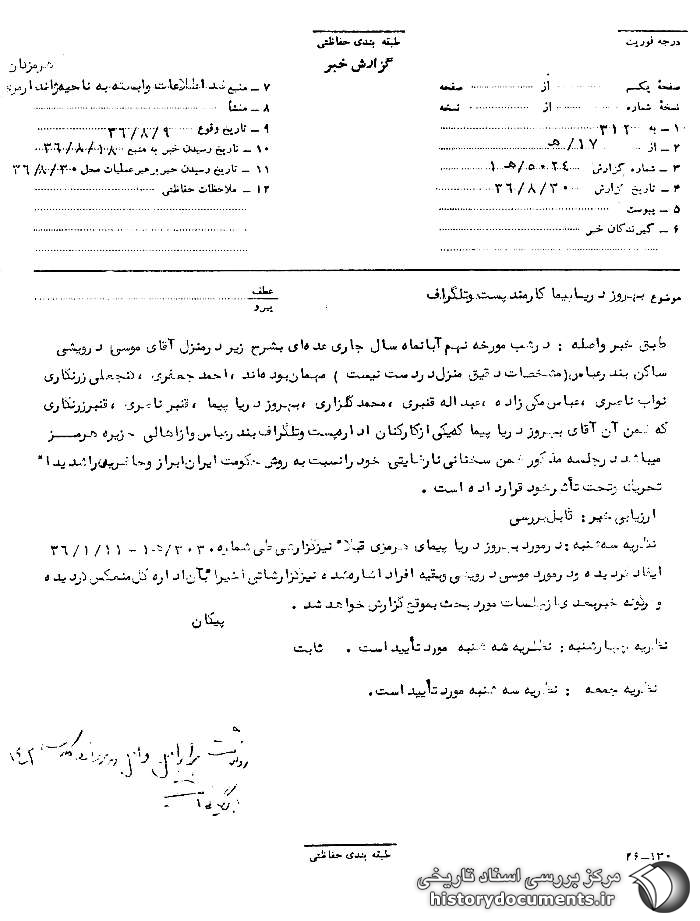 درجه فوریت
طبقه بندی حفاظتی
گزارش خبر
هرمزان
صفحه یکم ......... از ......... صفحه
نسخه شماره ......... از ......... نسخه
۱ ـ به ۳۱۲
۲ ـ از ۱۷/هـ
۳ ـ شماره گزارش ۵۰۲۴/هـ ۱
۴ ـ تاریخ گزارش ۳۶/۸/۳۰
۵ ـ پیوست
۶ ـ گیرندگان خبر
۷ ـ منبع ضد اطلاعات وابسته به ناحیه ژاندارمری
۸ ـ منشأ
۹ ـ تاریخ وقوع ۳۶/۸/۹
۱۰ ـ تاریخ رسیدن خبر به منبع ۳۶/۸/۱۸
۱۱ ـ تاریخ رسیدن خبر برهبر عملیات محل ۳۶/۸/۳۰
۱۲ ـ ملاحظات حفاظتی
موضوع بهروز دریاپیما کارمند پست و تلگراف
عطف
پیرو
طبق خبر واصله : در شب مورخه نهم آبانماه سال جاری عده‌ای بشرح زیر در منزل آقای موسی درویشی
ساکن بندرعباس (مشخصات دقیق منزل در دست نیست ) مهمان بوده‌اند ، احمد جعفری ، تنجعلی زرنکاری
نواب ناصری ، عباس مکی زاده ، عبداله قنبری ، محمد گلزاری ، بهروز دریا پیما ، قنبر ناصری ، قنبر زرنکاری
که ضمن آن آقای بهروز دریا پیما که یکی از کارکنان اداره پست و تلگراف بندرعباس و از اهالی جزیره هرمز
میباشد در جلسه مذکور ضمن سخنانی نارضایتی خود را نسبت به روش حکومت ایران ابراز و حاضرین را شدیدا"
تحریک و تحت تأثر خود قرار داده است .
ارزیابی خبر : قابل بررسی
نظریه سه‌شنبه : در مورد بهروز دریا پیمای هرمزی قبلا" نیز گزارشی طی شماره ۳۰۳۰/هـ ۱ - ۳۶/۱/۱۱
ایفاد گردیده و در مورد موسی درویشی و بقیه افراد اشاره شده نیز گزارشاتی اخیرا" بآن اداره کل منعکس گردیده
و هرگونه خبر بعدی از جلسات مورد بحث بموقع گزارش خواهد شد .
پیکان
نظریه چهارشنبه : نظریه سه شنبه مورد تأیید است . ثابت
نظریه جمعه : نظریه سه شنبه مورد تأیید است .
طبقه بندی حفاظتی
۲۶ـ۱۳۰
مرکز بررسی اسناد تاریخی
historydocuments.ir